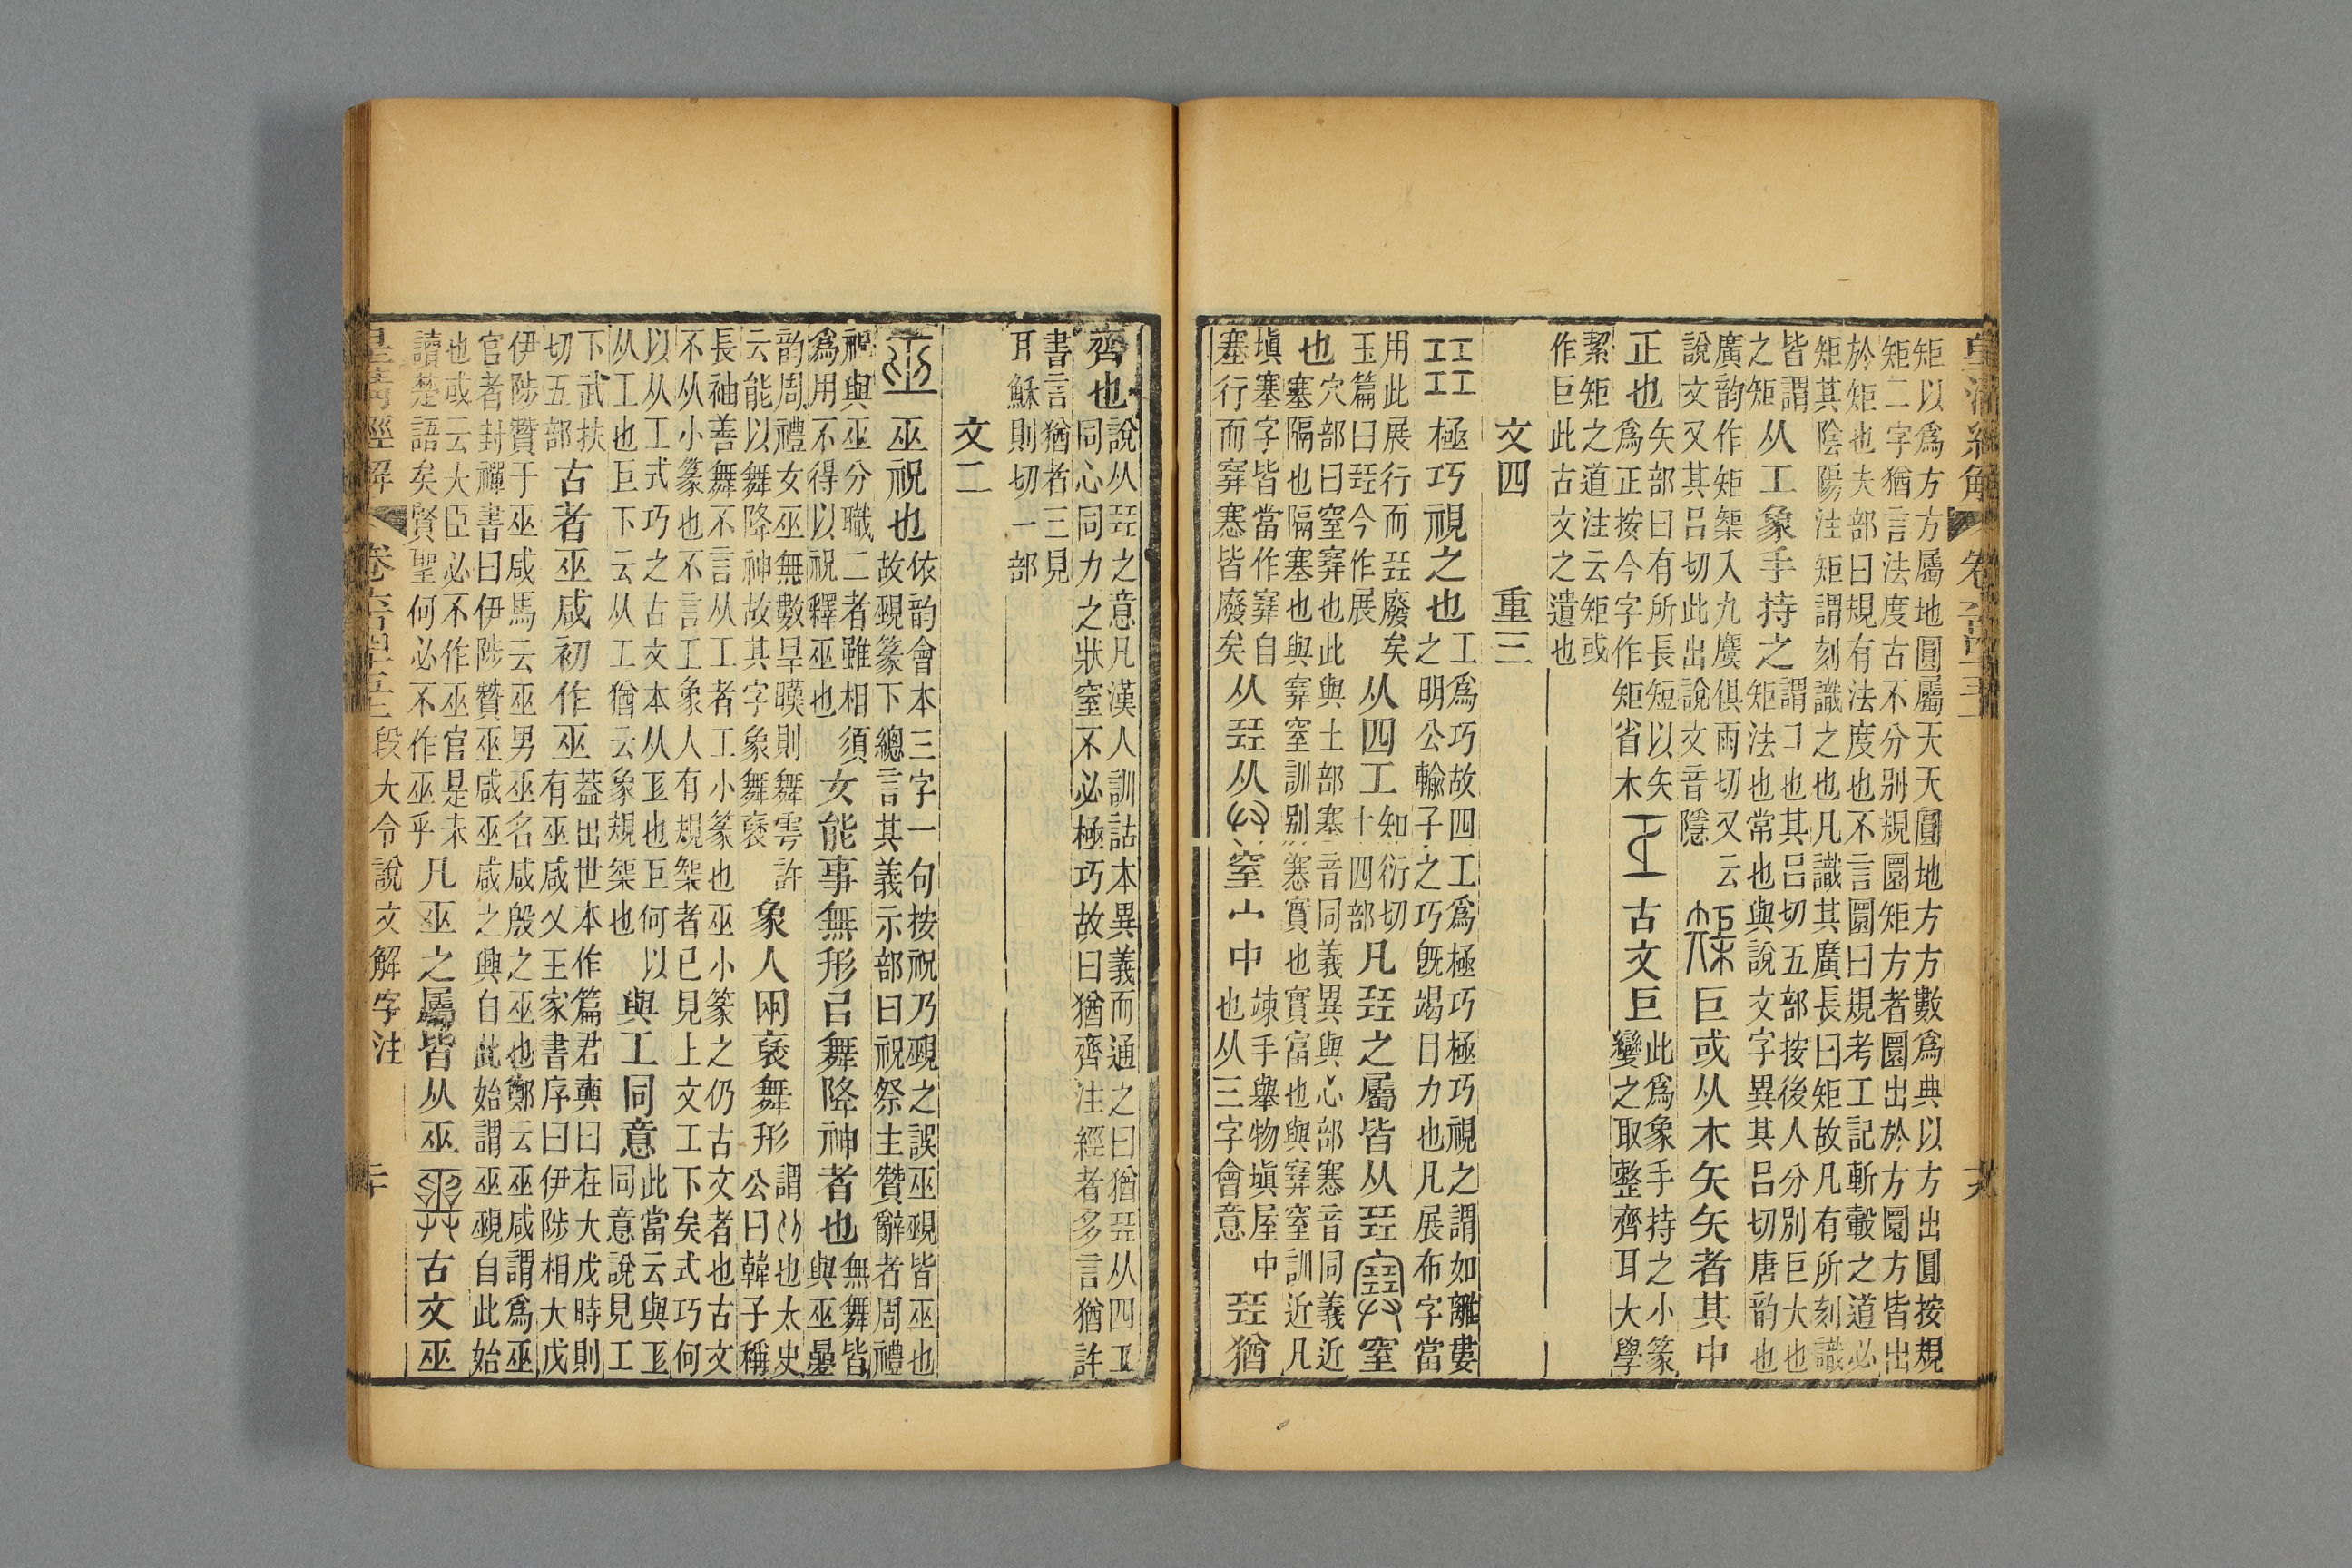 皇清經解
矩以爲方方屬地圓屬天天圓地方方數爲典以方出圓按規
矩二字猶言法度古不分別規圜矩方者圜出於方圜方皆出
於矩也夫部曰規有法度也不言圜曰規考工記斬轂之道必
矩其陰陽注矩謂刻識之也凡識其廣長曰矩故凡有所刻識
皆謂之矩从工象手持之謂コ也其呂切五部按後人分別巨大也矩法也常也與說文字異其呂切唐韵也
廣韵作矩榘入九麌俱雨切又云說文又其呂切此出說文音隱榘巨或从木矢矢者其中
正也矢部曰有所長短以矢爲正按今字作矩省木古文巨此爲象手持之小篆變之取整齊耳大學
絜矩之道注云矩或作巨此古文之遺也
文四 重三
㠭極巧視之也工爲巧故四工爲極巧極巧視之謂如離婁之明公輸子之巧旣竭目力也凡展布字當
用此展行而㠭廢矣玉篇曰㠭今作展从四工知衍切十四部凡㠭之屬皆从㠭𡫳窒
也穴部曰窒𡫳也此與土部塞音同義異與心部𡫳音同義近塞隔也隔塞也與𡫳窒訓別𡫳實也實富也與𡫳窒訓近凡
塡塞字皆當作𡫳自塞行而𡫳𡫳皆廢矣从㠭从廾窒宀中竦手舉物塡屋中也从三字會意㠭猶
齊也說从㠭之意凡漢人訓詁本異義而通之曰猶㠭从四工同心同力之狀窒不必極巧故曰猶齊注經者多言猶許
書言猶者三見耳穌則切一部
文二
巫巫祝也依韵會本三字一句按祝乃覡之誤巫覡皆巫也故覡篆下總言其義示部曰祝祭主贊辭者周禮
祝與巫分職二者雖相須爲用不得以祝釋巫也女能事無形㠯舞降神者也無舞皆與巫㬪
韵周禮女巫無數旱暵則舞雩許云能以舞降神故其字象舞褎象人兩褎舞形謂从也太史公曰韓子稱
長袖善舞不言从工者工小篆也巫小篆之仍古文者也古文不从小篆也不言工象人有規榘者已見上文工下矣式巧何
以从工式巧之古文本从𢒄也巨何以从工也巨下云从工猶云象規榘也與工同意此當云與𢒄同意說見工
下武扶切五部古者巫咸初作巫蓋出世本作篇君奭曰在大戊時則有巫咸乂王家書序曰伊陟相大戊
伊陟贊于巫咸馬云巫男巫名咸殷之巫也鄭云巫咸謂爲巫官者封禪書曰伊陟贊巫咸巫咸之興自此始謂巫覡自此始
也或云大臣必不作巫官是未讀楚語矣賢聖何必不作巫乎凡巫之屬皆从巫古文巫
皇淸經解 卷六百四十五 段大令說文解字注 二十